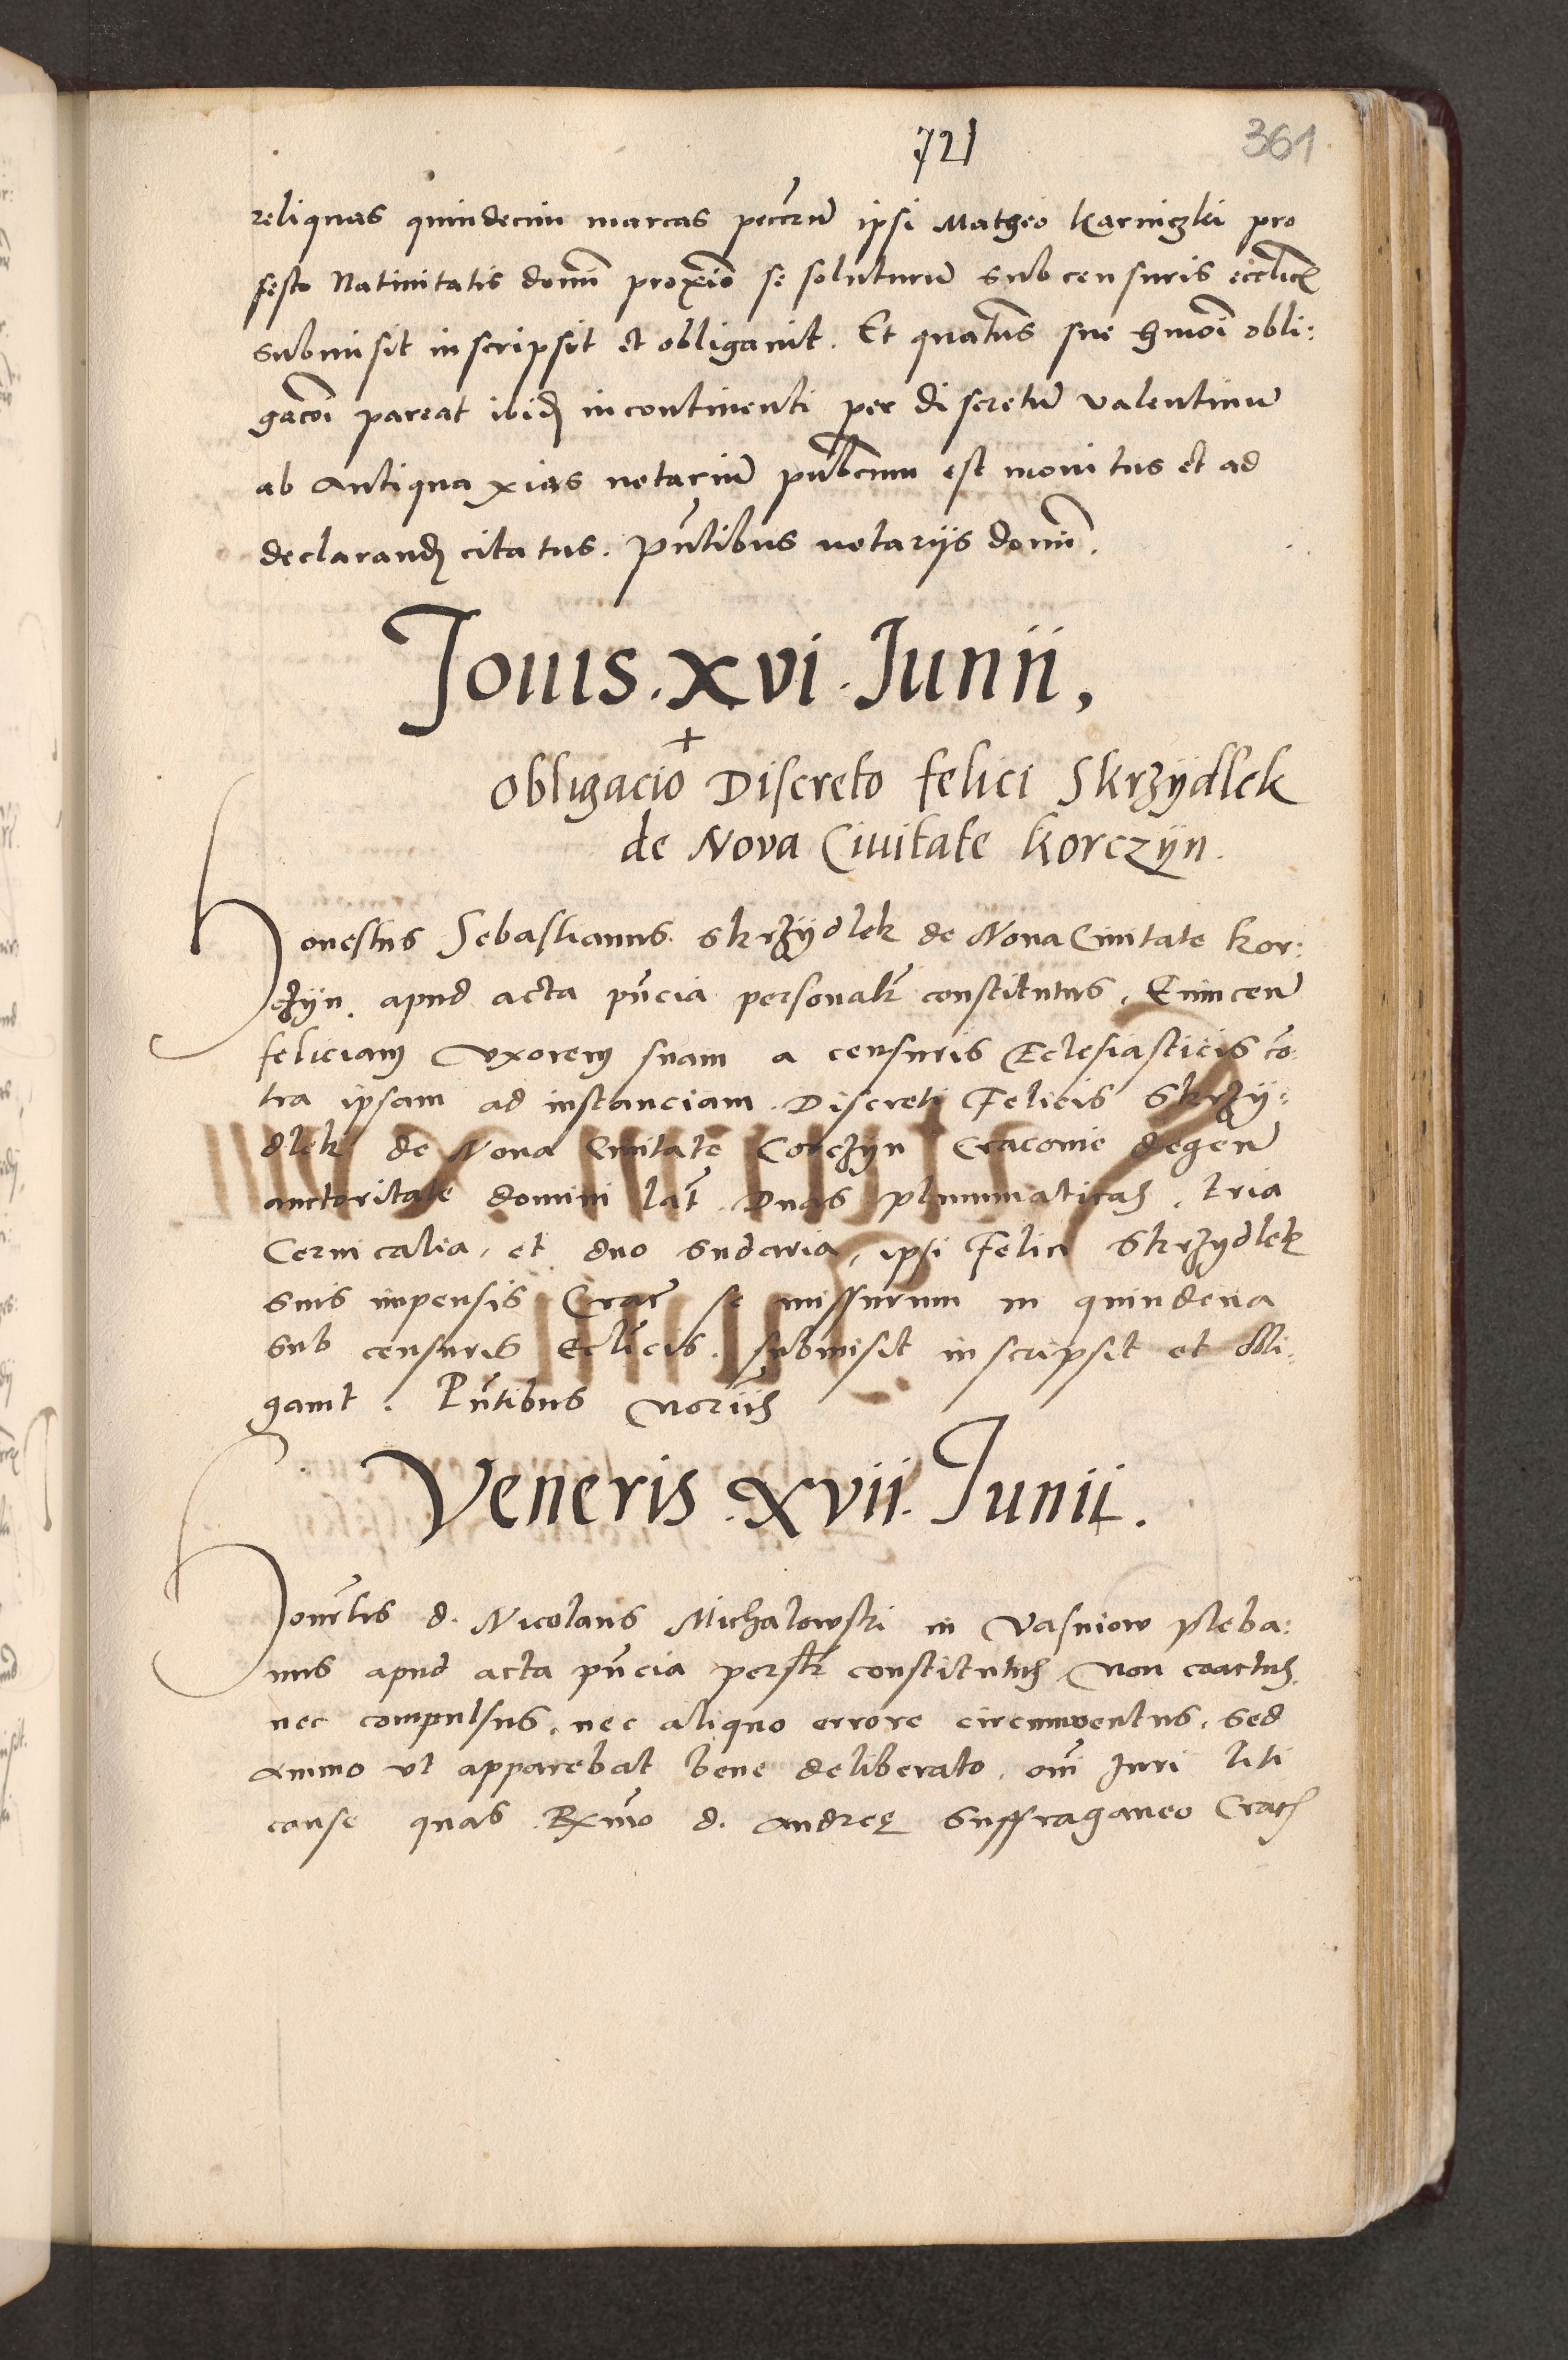 721
361
reliquas quindecim marcas pecc̄rū ipsi Matheo karniczki pro
festo Natiuitatis domī proxīo se soluturū sub censuris eccliīcꝭ
submisit inscripsit et obligauit. Et quatn̄s sue hm̄oi obli:
gacoī pareat ibid incontinenti per discretū valentinū
ab Antiqua notariū publicum est monitus et ad
declarand citatus. pn̄tibus notarijs domī.
Jouis. xvi. Junii,
+
Obligacio Discreto felici Skrzÿdlek
de Nova Ciuitate Korczÿn.
Honestus Sebastianus Skrzÿdlek de Noua Ciuitate Kor:
czÿn. apud acta pn̄cia personalr̄ constitutus,
feliciam Vxorem suam a censuris Eclesiasticis cō
tra ipsam ad instanciam. Discreti Felicis Skrzy:
dlek de Noua Ciuitate Corczÿn Cracouie degen̄
auctoritate domini lat̄. Duas plummaticas, tria
Ceruicalia, et duo sudaria, ipsi Felici Skrzÿdlek
suis impensis Crac̄ se missurum in quindena
sub censuris Ecl̄icis. submisit inscripsit et obli:
gauit. Pn̄tibus
Veneris. xvii. Junii.
d. Nicolaus Michalowski in Vasniow pleba:
nus apud acta pn̄cia persōlr̄ constitutus Non coactus,
nec compulsus, nec aliquo errore circumuentus, sed
animo vt apparebat bene deliberato, om̄i Juri liti
cause quas Rx̄mo d. Andreę Suffraganeo Crac̄